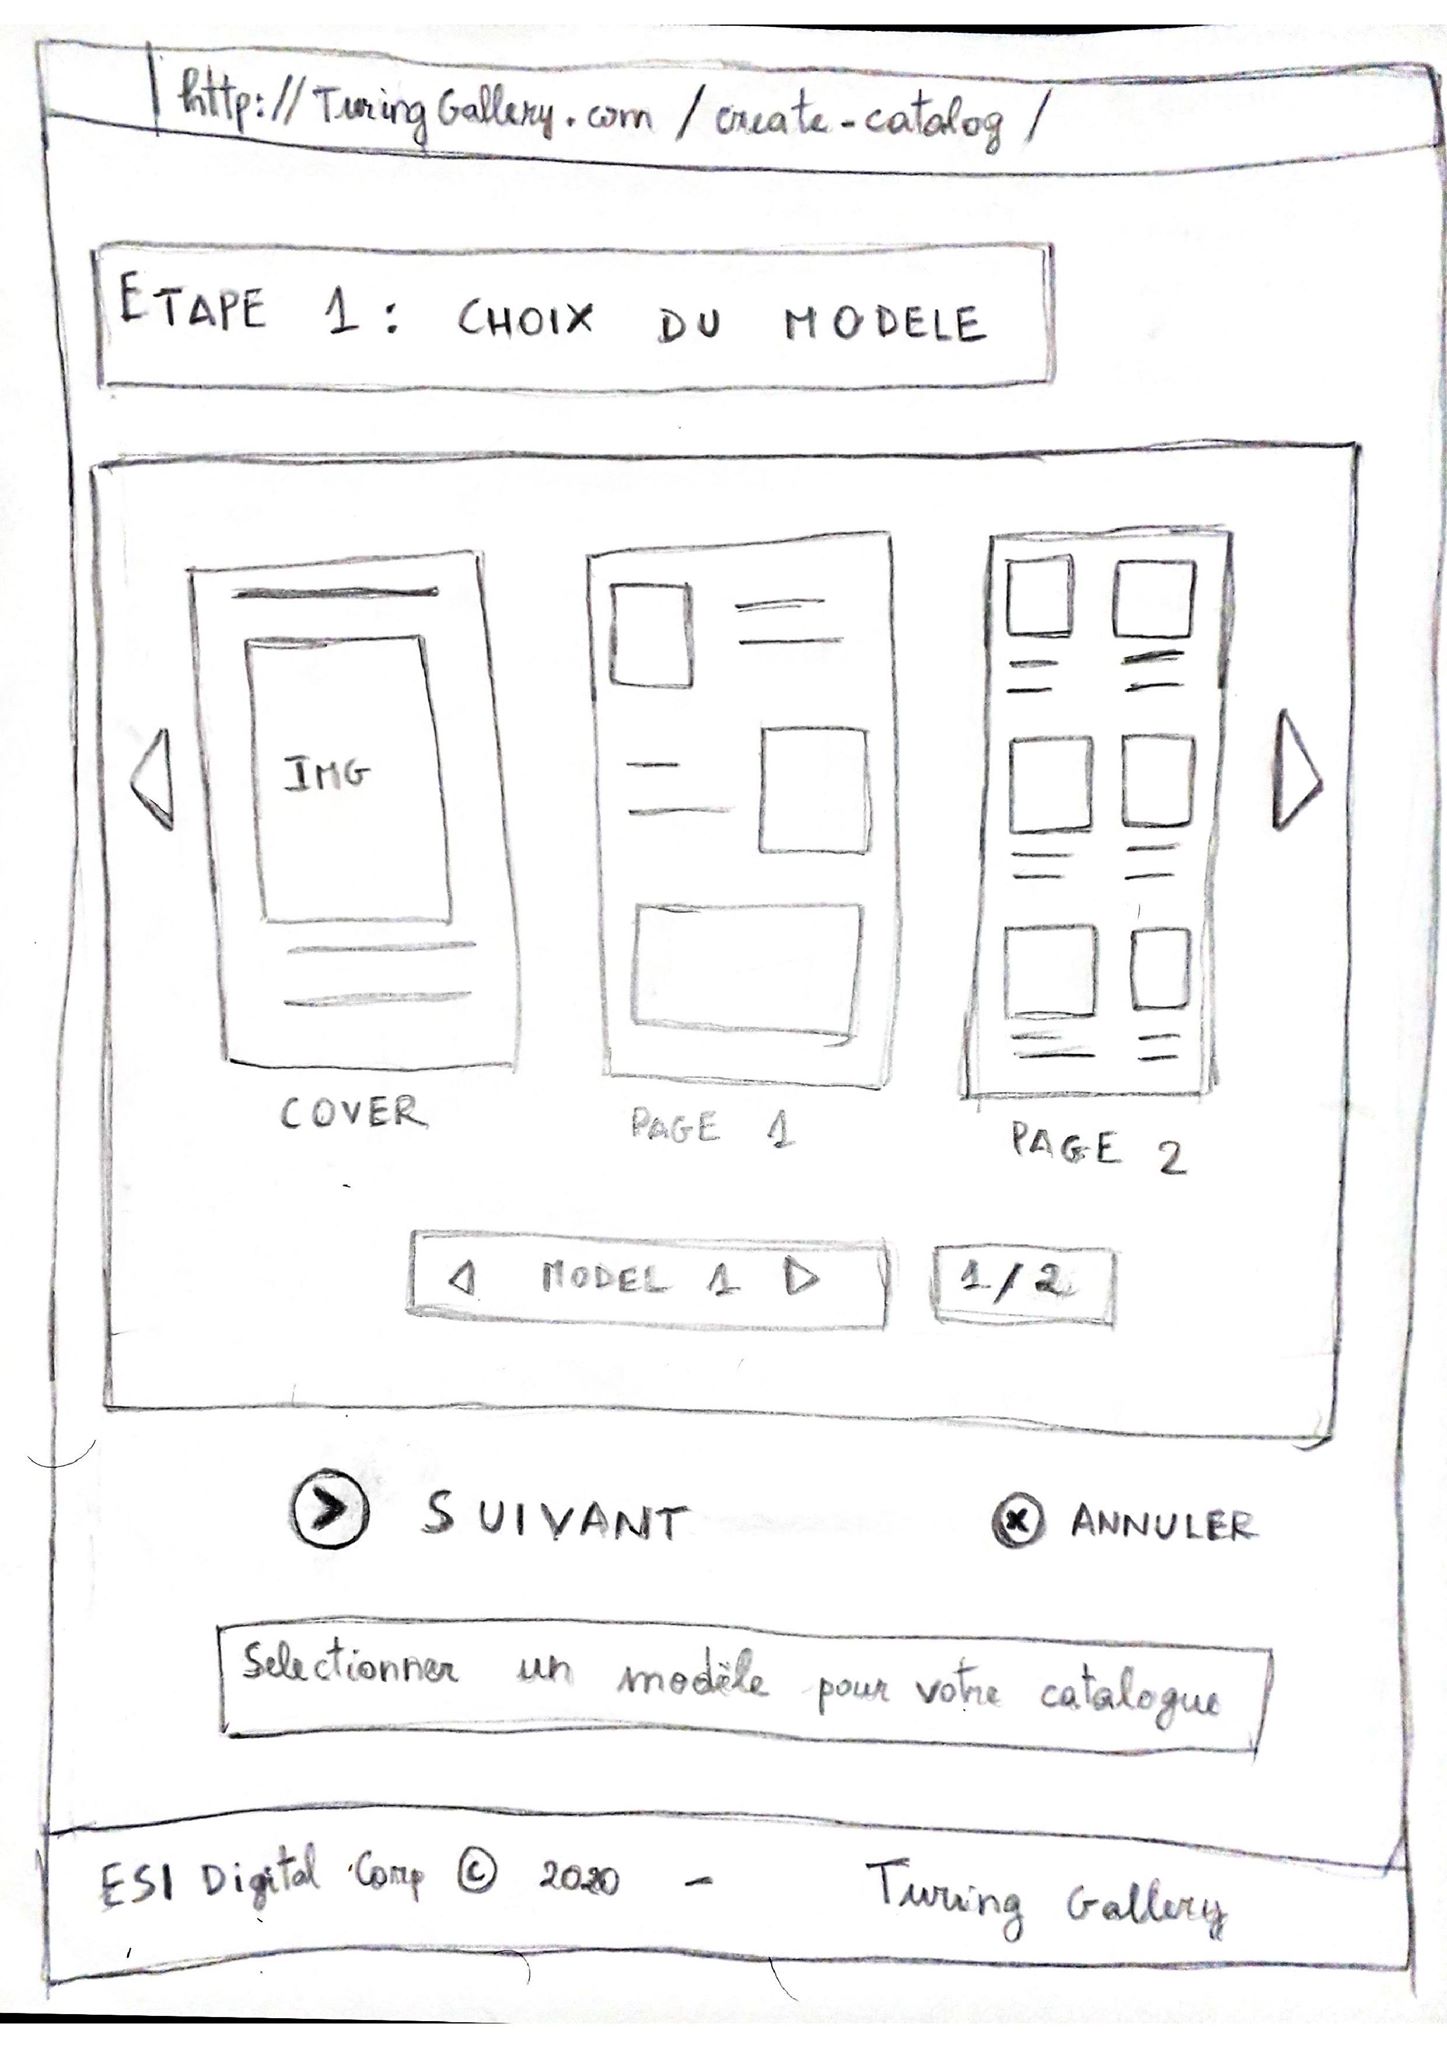 http://TuringGallery.com/create-catalog/
ETAPE 1: CHOIX DU MODELE
IMG
COVER
PAGE 1
PAGE 2
MODEL 1
1/2
SUIVANT
ANNULER
Selectionner un modèle pour votre catalogue
ESI Digital Corp © 2020 - Turing Gallery